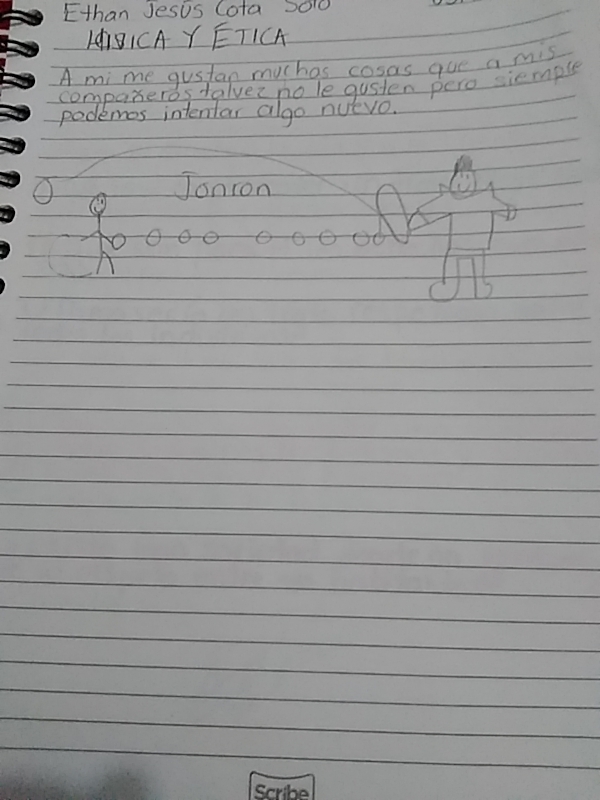 Ethan Jesús Cota Soto
CIVICA Y ETICA
A mi me gustan muchas cosas que a mis
compañeros talvez no le gusten pero siempre
podemos intentar algo nuevo.
Jonron
Scribe